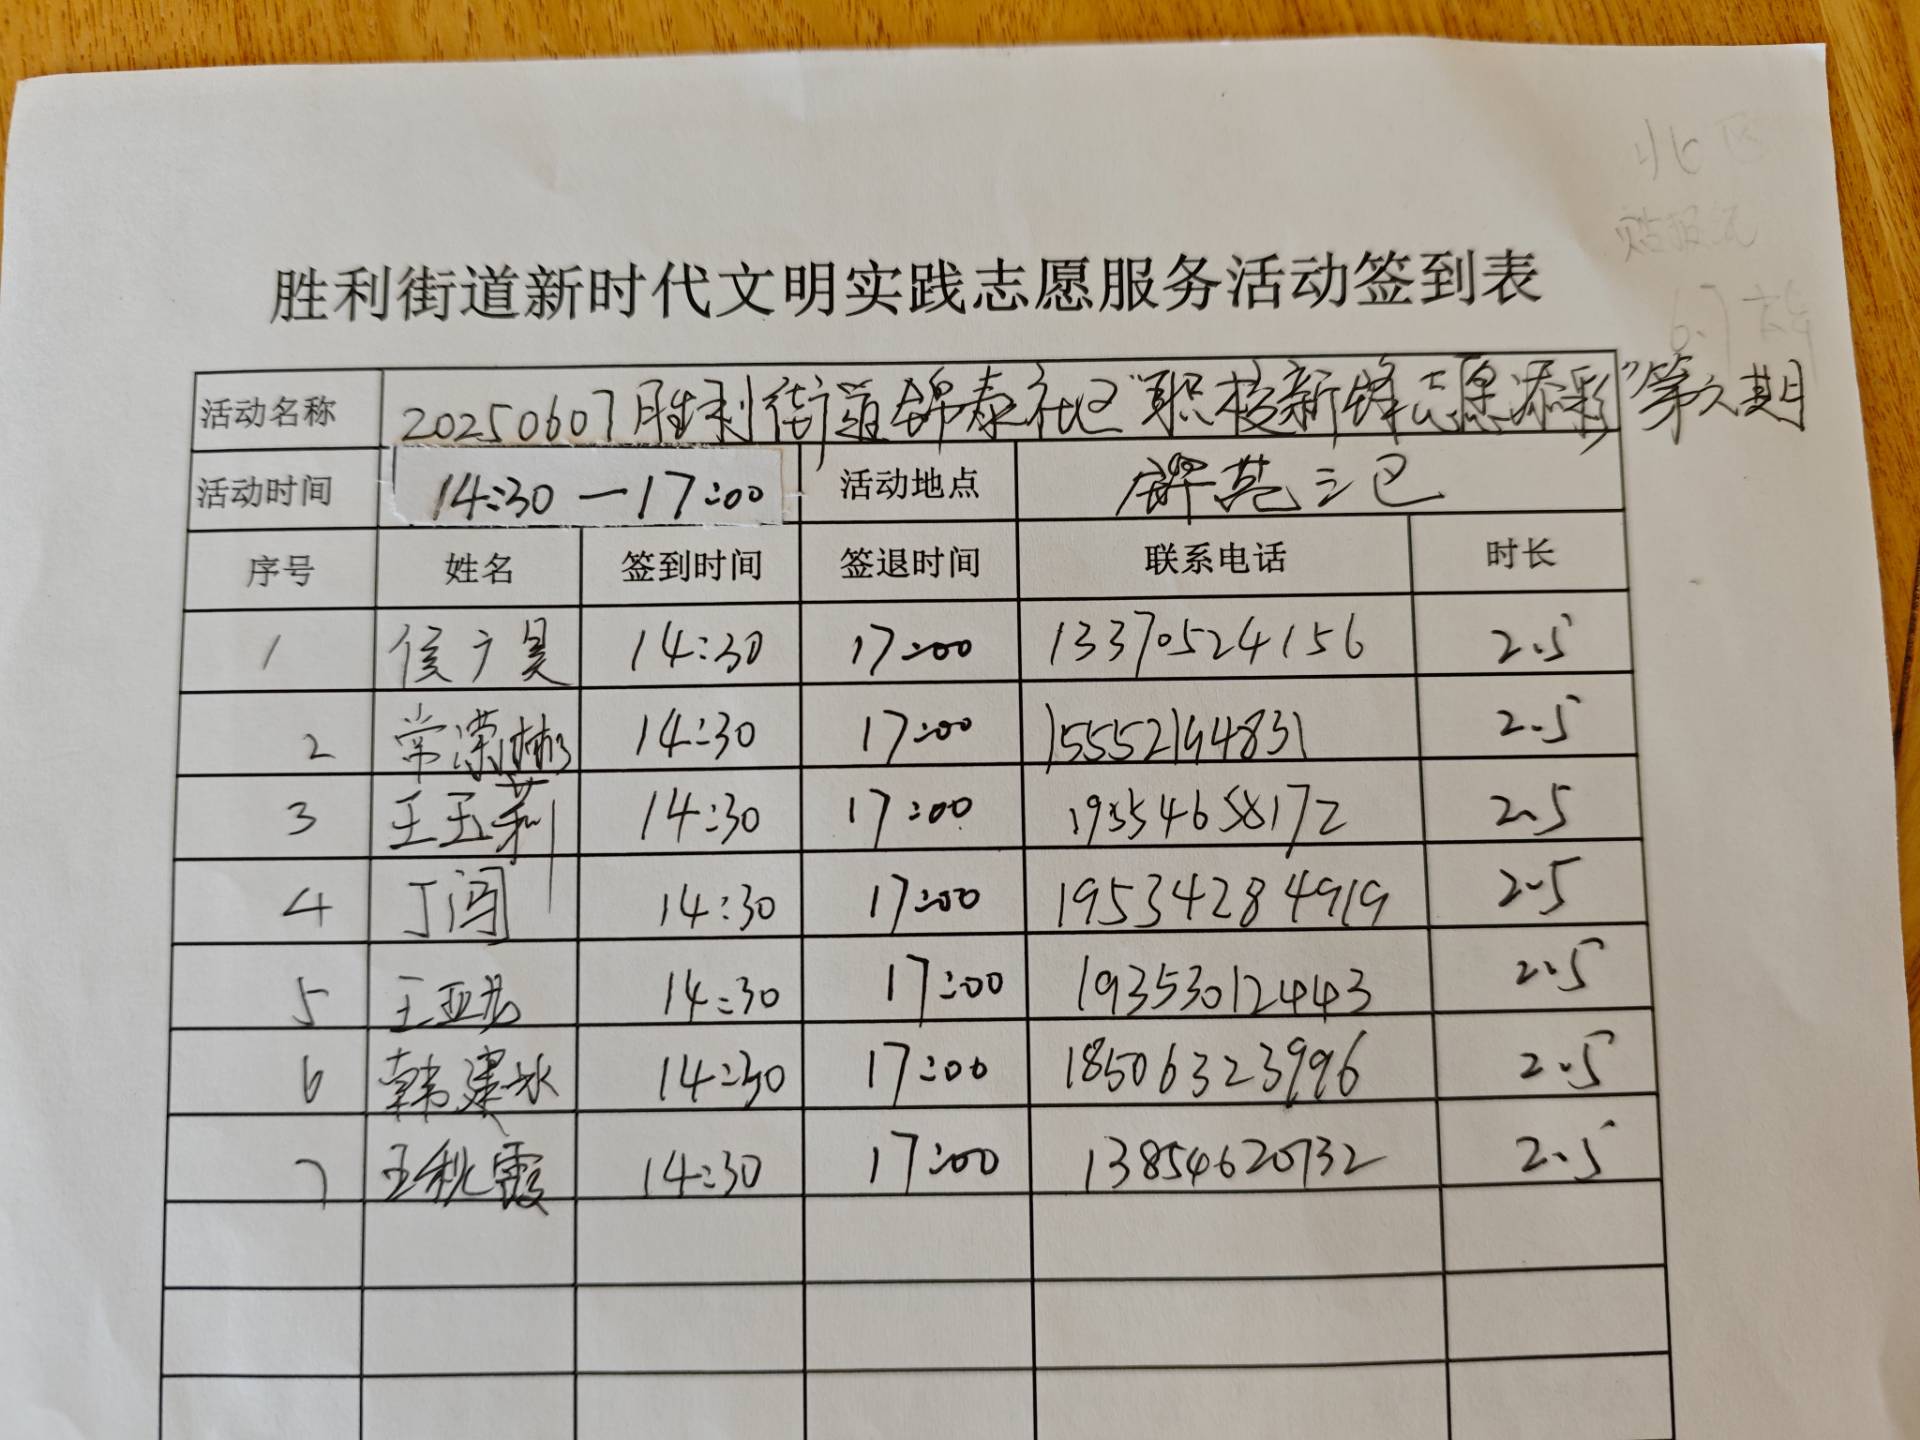 北区
6.7
胜利街道新时代文明实践志愿服务活动签到表
活动名称 20250607胜利街道锦泰社区"职校新锋志愿添彩"第六期
活动时间 14:30—17:00 活动地点 锦苑三区
序号 姓名 签到时间 签退时间 联系电话 时长
1 侯广昊 14:30 17:00 13370524156 2.5
2 常濴彬 14:30 17:00 15552194831 2.5
3 王玉莉 14:30 17:00 19554658172 2.5
4 丁闯 14:30 17:00 19534284919 2.5
5 王亚 14:30 17:00 19353012443 2.5
6 韩建冰 14:30 17:00 18506323996 2.5
7 王秋霞 14:30 17:00 13854620732 2.5